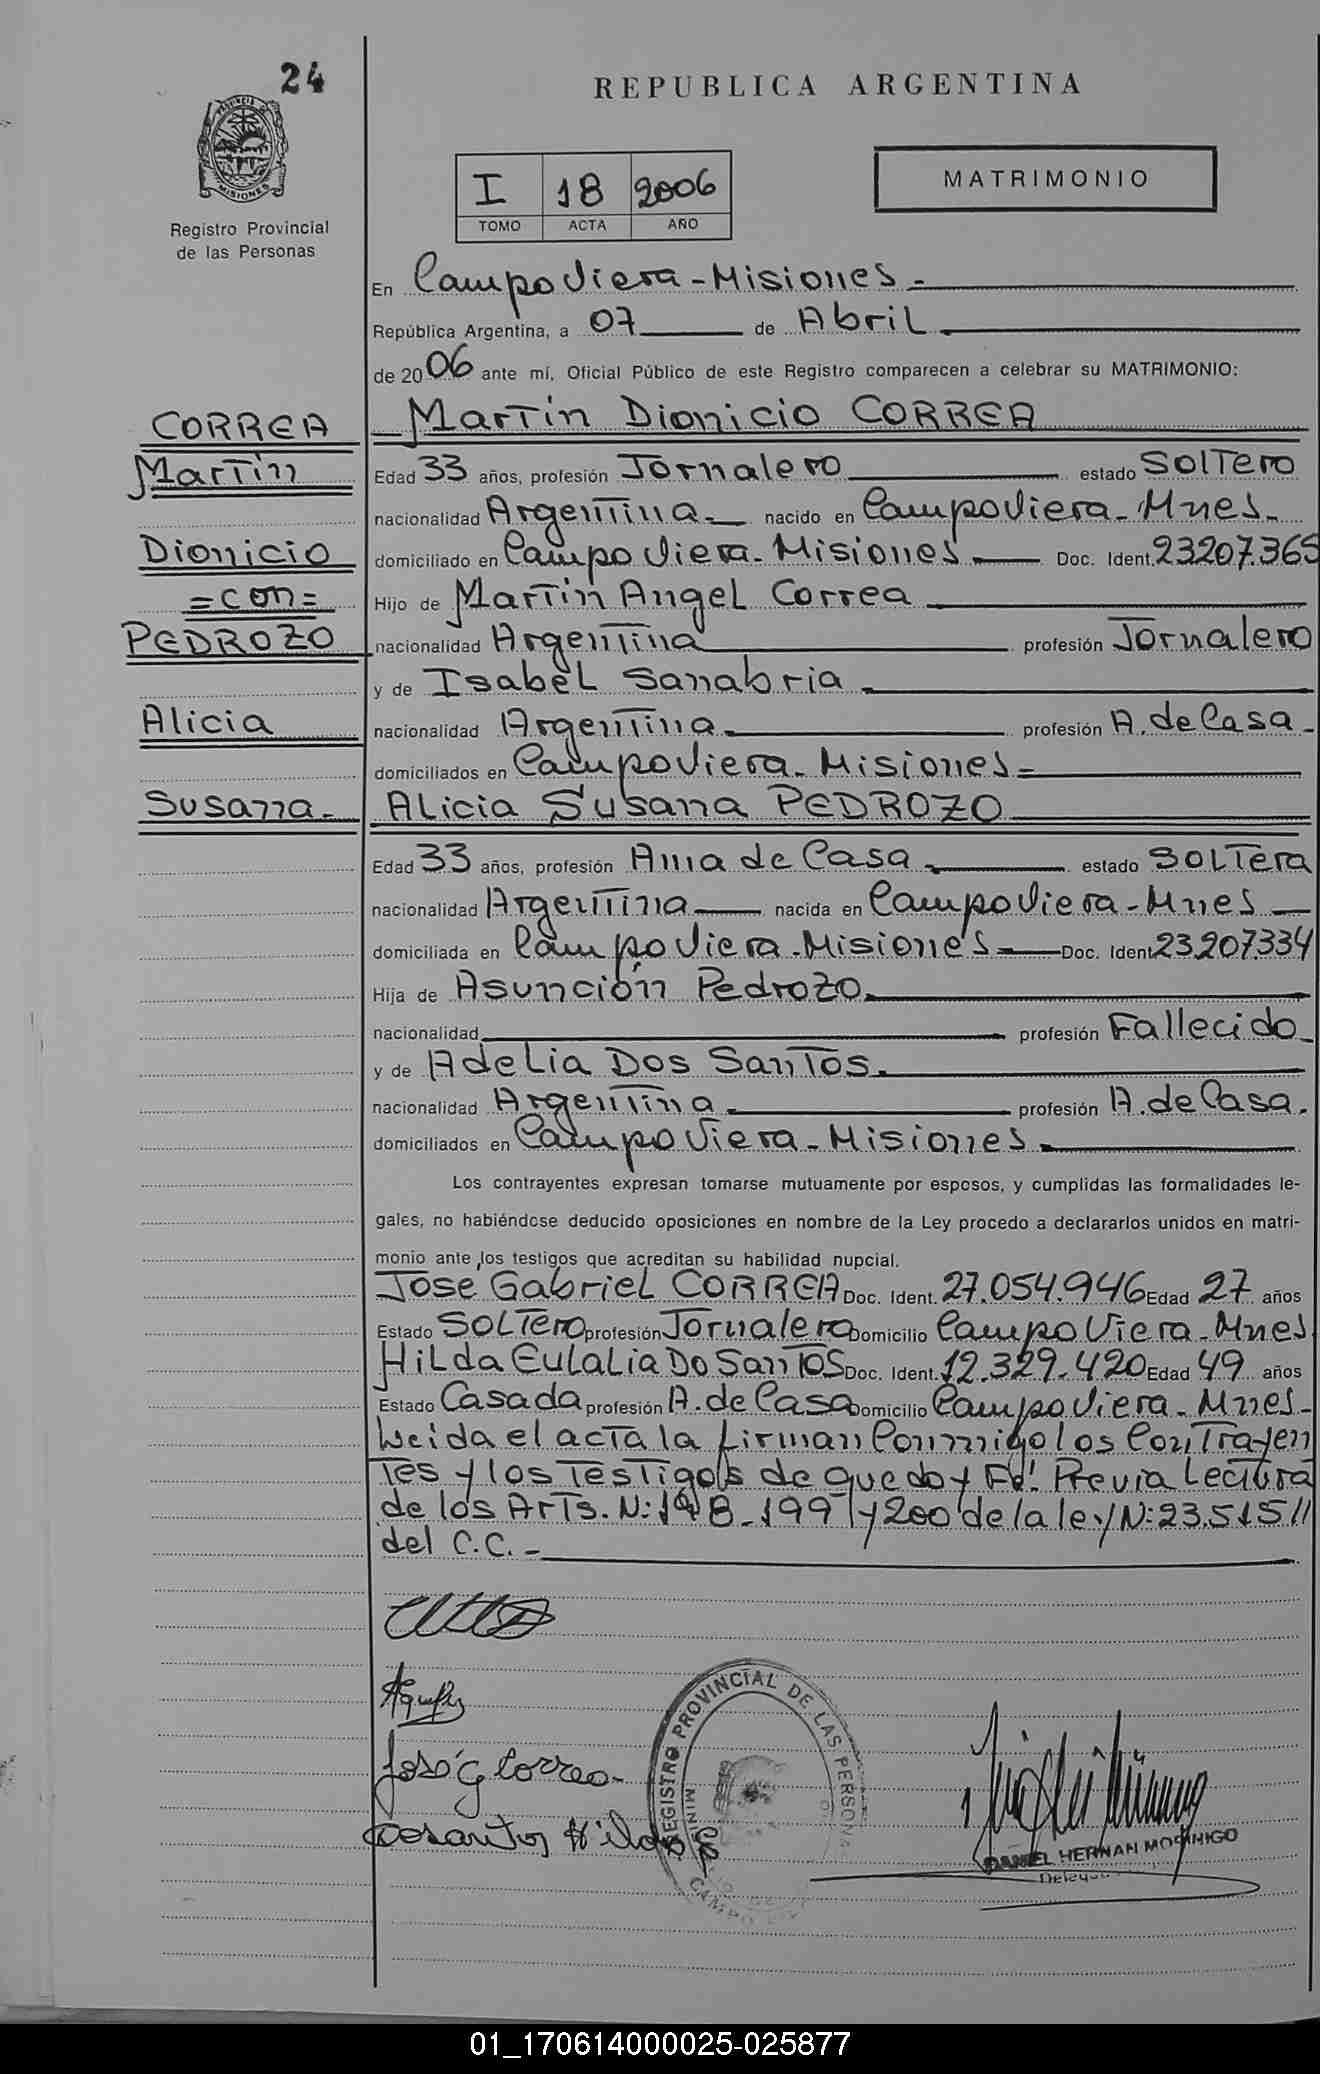 24
REPUBLICA ARGENTINA
PROVINCIA DE MISIONES
Registro Provincial
de las Personas
I 18 2006
TOMO ACTA AÑO
MATRIMONIO
En Campo Viera - Misiones -
República Argentina, a 07 de Abril
de 2006 ante mí, Oficial Público de este Registro comparecen a celebrar su MATRIMONIO:
CORREA
Martín
Dionicio
=con=
PEDROZO
Alicia
Susana -
Martín Dionicio CORREA
Edad 33 años, profesión Jornalero estado Soltero
nacionalidad Argentina - nacido en Campo Viera - Mnes -
domiciliado en Campo Viera - Misiones - Doc. Ident. 23207.365
Hijo de Martin Angel Correa
nacionalidad Argentina profesión Jornalero
y de Isabel Sanabria
nacionalidad Argentina profesión A. de Casa -
domiciliados en Campo Viera - Misiones =
Alicia Susana PEDROZO
Edad 33 años, profesión Ama de Casa estado Soltera
nacionalidad Argentina nacida en Campo Viera - Mnes -
domiciliada en Campo Viera - Misiones - Doc. Ident. 23.207.334
Hija de Asunción Pedrozo.
nacionalidad profesión Fallecido
y de Adelia Dos Santos.
nacionalidad Argentina profesión A. de Casa.
domiciliados en Campo Viera - Misiones.
Los contrayentes expresan tomarse mutuamente por esposos, y cumplidas las formalidades le-
gales, no habiéndose deducido oposiciones en nombre de la Ley procedo a declararlos unidos en matri-
monio ante los testigos que acreditan su habilidad nupcial.
Jose Gabriel CORREA Doc. Ident. 27.054.946 Edad 27 años
Estado Soltero profesión Jornalero Domicilio Campo Viera - Mnes
Hilda Eulalia Do Santos Doc. Ident. 12.329.420 Edad 49 años
Estado Casada profesión A. de Casa Domicilio Campo Viera - Mnes -
Leida el acta la firman Conmigo los Contrayen
tes y los Testigos de que doy Fe! Previa Lectura
de los Arts. N: 198 - 199 y 200 de la ley N: 23.515 //
del C.C. -
José G Correa -
Dosantos Hilda
REGISTRO PROVINCIAL DE LAS PERSONA
CAMPO
DANIEL HERNAN MORINIGO
01_170614000025-025877